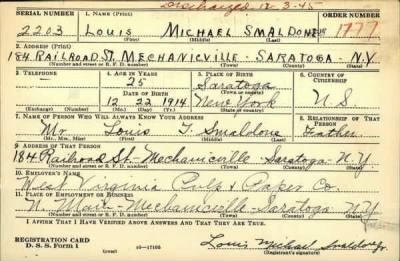 Discharged 12-3-45
SERIAL NUMBER 1. NAME (Print) ORDER NUMBER
2203 LOUIS MICHAEL SMALDONE JR 1777
(First) (Middle) (Last)
2. ADDRESS (Print)
184 RAILROAD ST. MECHANICVILLE - SARATOGA - N.Y.
(Number and street or R. F. D. number) (Town) (County) (State)
3. TELEPHONE 4. AGE IN YEARS 5. PLACE OF BIRTH 6. COUNTRY OF CITIZENSHIP
25 Saratoga
DATE OF BIRTH (Town or county)
12 22 1914 New York U.S.
(Exchange) (Number) (Mo.) (Day) (Yr.) (State or country)
7. NAME OF PERSON WHO WILL ALWAYS KNOW YOUR ADDRESS 8. RELATIONSHIP OF THAT PERSON
Mr. Louis J Smaldone Father
(Mr., Mrs., Miss) (First) (Middle) (Last)
9. ADDRESS OF THAT PERSON
184 Railroad St. Mechanicville - Saratoga - N.Y.
(Number and street or R. F. D. number) (Town) (County) (State)
10. EMPLOYER'S NAME
West Virginia Pulp & Paper Co.
11. PLACE OF EMPLOYMENT OR BUSINESS
N. Main - Mechanicville - Saratoga N.Y.
(Number and street or R. F. D. number) (Town) (County) (State)
I AFFIRM THAT I HAVE VERIFIED ABOVE ANSWERS AND THAT THEY ARE TRUE.
REGISTRATION CARD
D. S. S. Form 1 (over) 16-17105 Louis Michael Smaldone Jr.
(Registrant's signature)